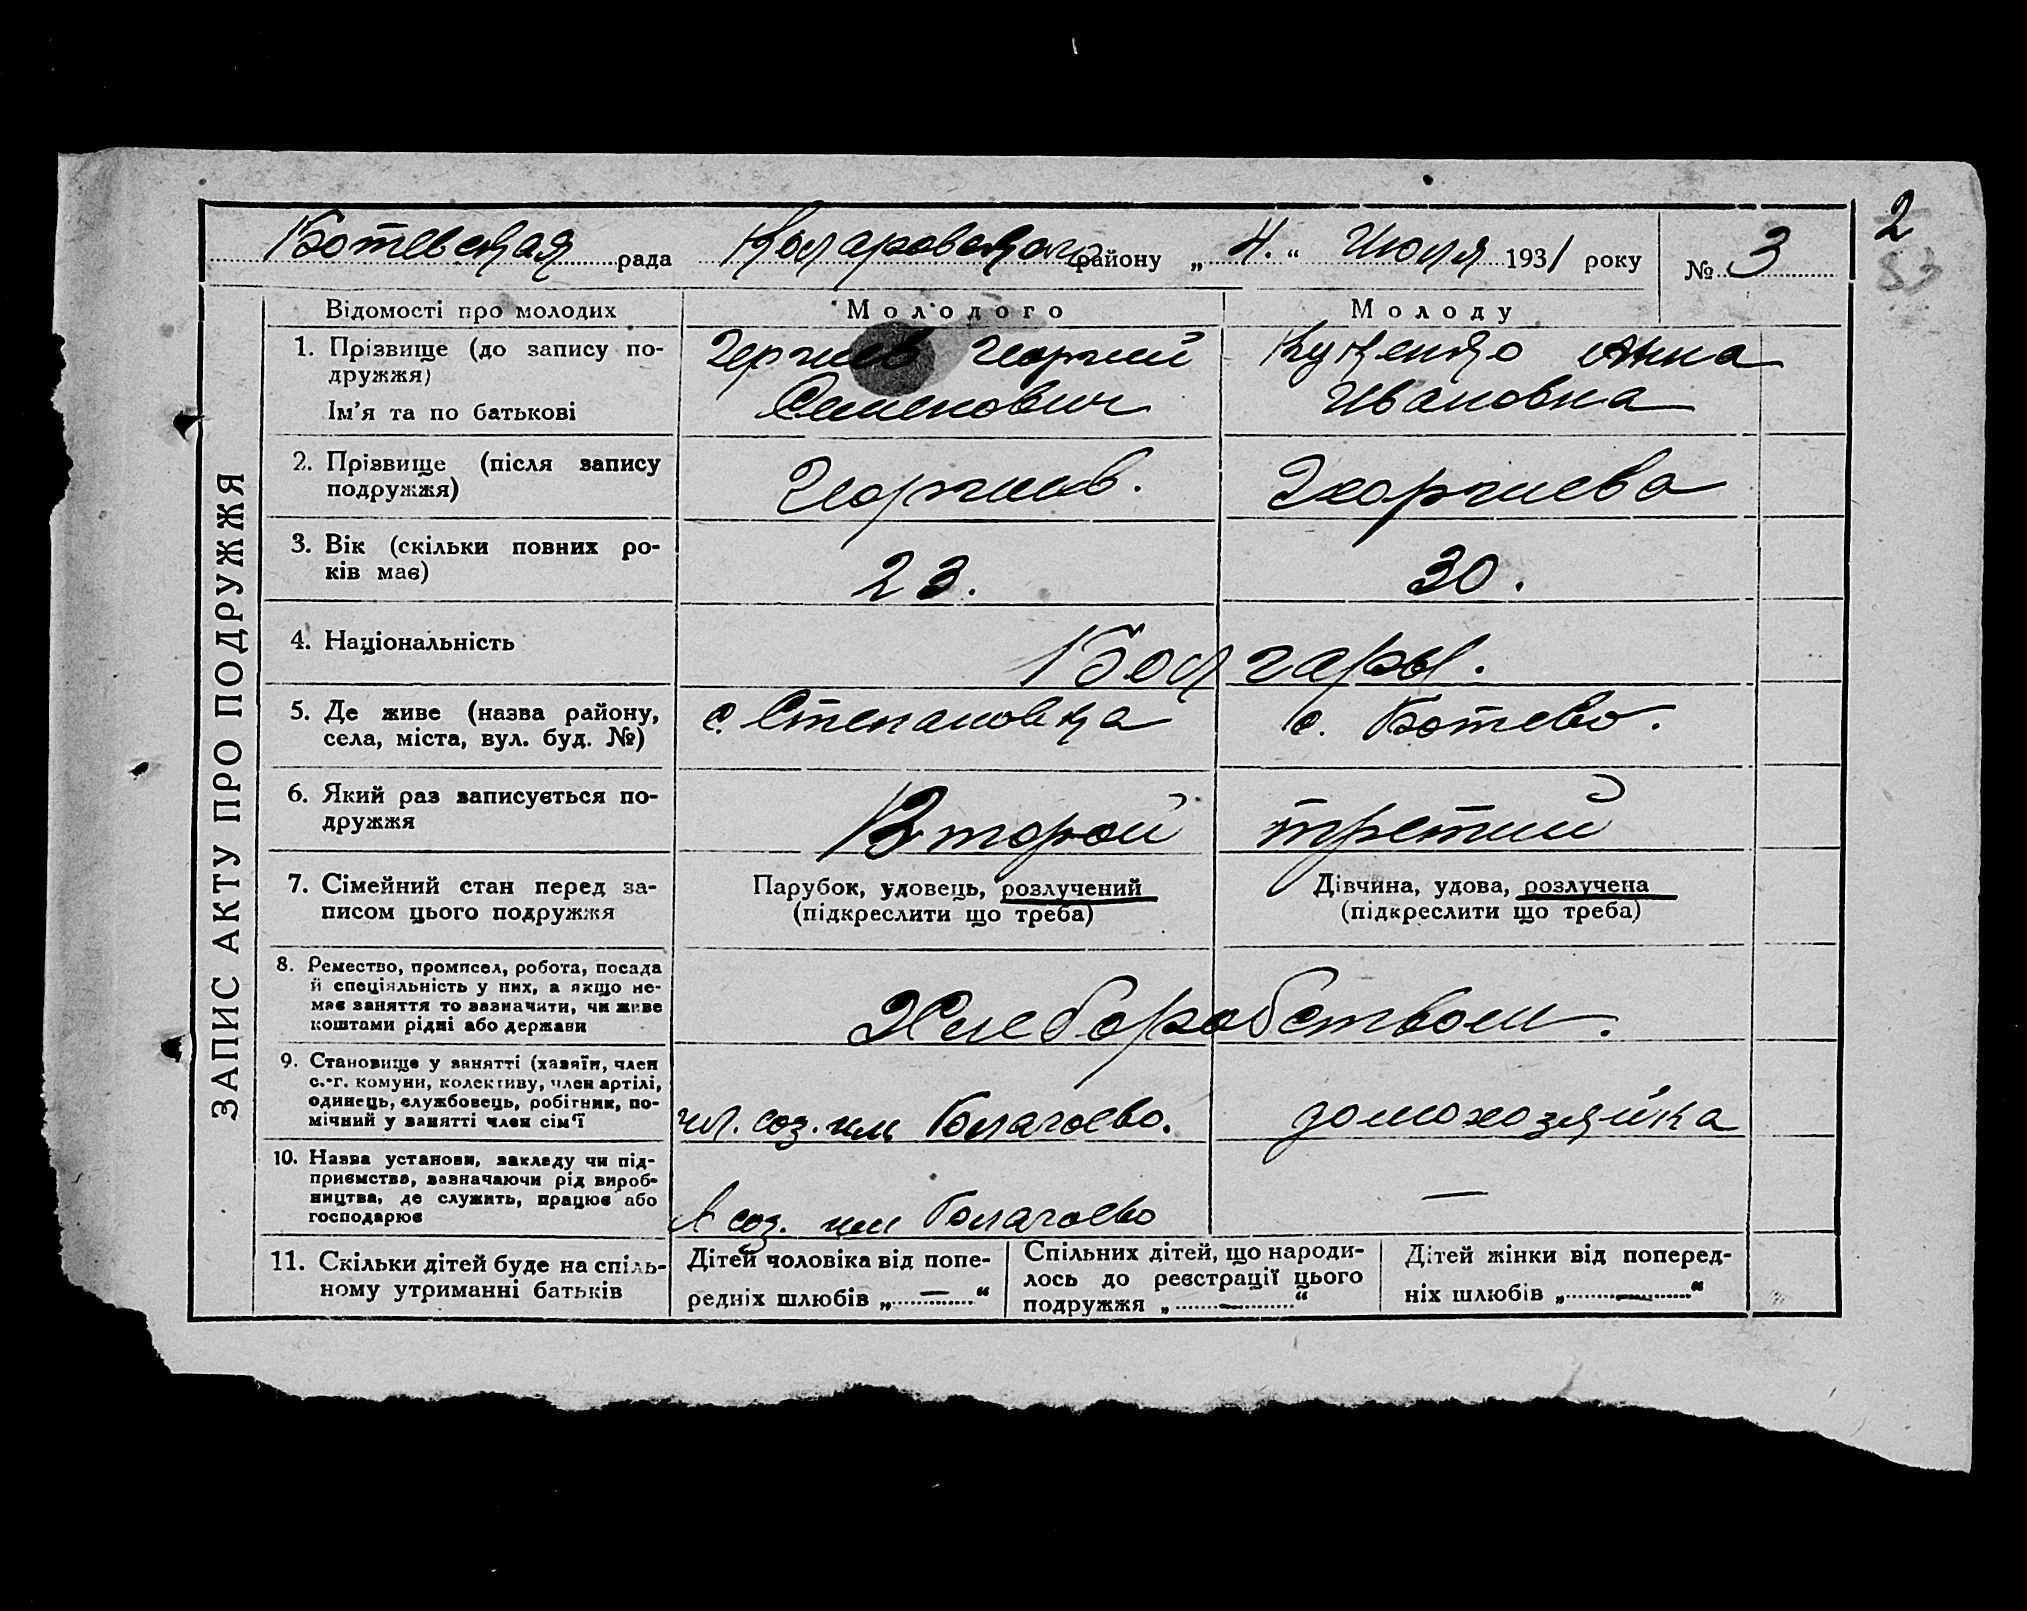 2
53
Ботевская рада Коларовского району „ 4. “ Июля 1931 року № 3
ЗАПИС АКТУ ПРО ПОДРУЖЖЯ
Відомості про молодих Молодого Молоду
1. Прізвище (до запису по-
дружжя)
Ім'я та по батькові
Георгий
Семенович
Куценко Анна
Ивановна
2. Прізвище (після запису
подружжя)
Георгиев.
Георгиева
3. Вік (скільки повних ро-
ків має)
23.
30.
4. Національність
Болгары.
5. Де живе (назва району,
села, міста, вул. буд. №)
с. Степановка
с. Ботево.
6. Який раз записується по-
дружжя
Второй
третий
7. Сімейний стан перед за-
писом цього подружжя
Парубок, удовець, розлучений
(підкреслити що треба)
Дівчина, удова, розлучена
(підкреслити що треба)
8. Ремество, промисел, робота, посада
й спеціяльність у них, а якщо не-
має заняття то зазначити, чи живе
коштами рідні або держави
Хлеборобством.
9. Становище у занятті (хазяїн, член
с.-г. комуни, колективу, член артілі,
одинець, службовець, робітник, по-
мічний у занятті член сім'ї
чл. соз. им Благоево.
домохозяйка
10. Назва установи, закладу чи під-
приємства, зазначаючи рід вироб-
ництва, де служить, працює або
господарює
В соз. им Благоево
—
11. Скільки дітей буде на спіль-
ному утриманні батьків
Дітей чоловіка від попе-
редніх шлюбів „ — “
Спільних дітей, що народи-
лось до реєстрації цього
подружжя „ — “
Дітей жінки від поперед-
ніх шлюбів „ — “